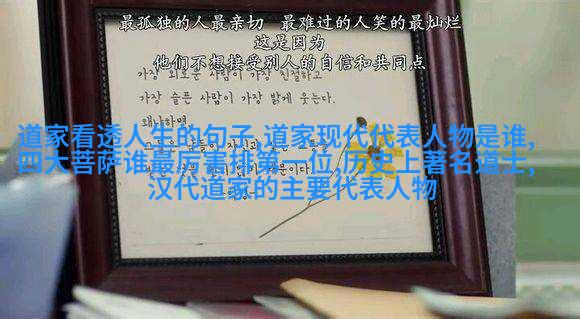 最孤独的人最亲切 最难过的人笑的最灿烂
这是因为
他们不想接受别人的自信和共同点
가장 외로운 사람이 가장 친절하고
가장 슬픈 사람이 가장 밝게 웃는다.
왜냐하면
道家看透人生的句子,道家现代代表人物是谁,
四大菩萨谁最厉害排第一位,历史上著名道士,
汉代道家的主要代表人物